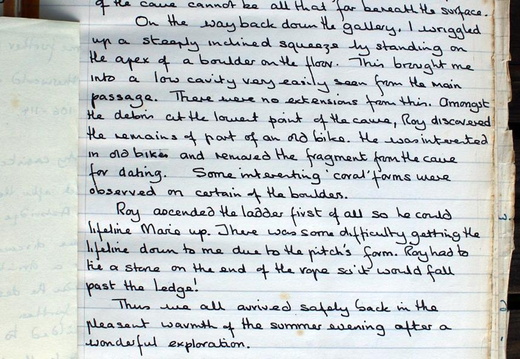 of the cave cannot be all that far beneath the surface.
On the way back down the gallery, I wriggled
up a steeply inclined squeeze by standing on
the apex of a boulder on the floor. This brought me
into a low cavity very easily seen from the main
passage. There were no extensions from this. Amongst
the debris at the lowest point of the cave, Roy discovered
the remains of part of an old bike. He was interested
in old bikes and removed the fragment from the cave
for dating. Some interesting 'coral' forms were
observed on certain of the boulders.
Roy ascended the ladder first of all so he could
lifeline Mario up. There was some difficulty getting the
lifeline down to me due to the pitch's form. Roy had to
tie a stone on the end of the rope so it would fall
past the ledge!
Thus we all arrived safely back in the
pleasant warmth of the summer evening after a
wonderful exploration.